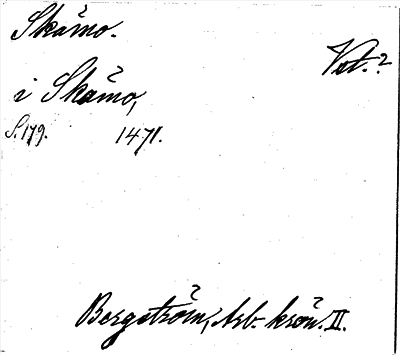 Skåmo.
Vst.?
i Skåmo,
S. 179. 1471.
Bergström, Arb. krön. II.